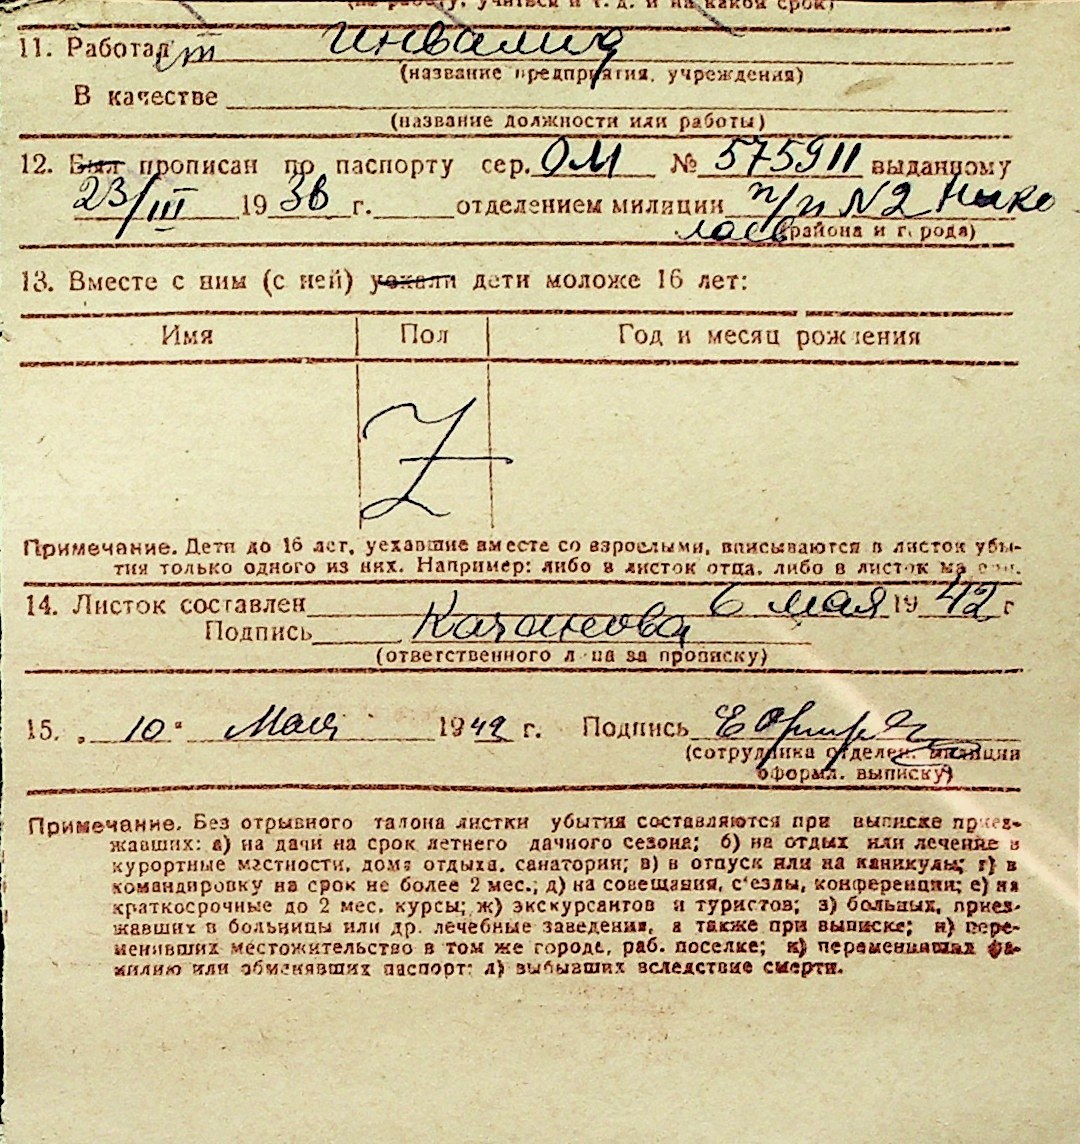 (на работу, учиться и т. д. и на какой срок)
11. Работал инвалид
(название предприятия, учреждения)
В качестве
(название должности или работы)
12. Был прописан по паспорту сер. ОМ № 575911 выданному
23/III 1938 г. отделением милиции п/п N2 Нико
лаев (района и города)
13. Вместе с ним (с ней) уехали дети моложе 16 лет:
Имя Пол Год и месяц рождения
Z
Примечание. Дети до 16 лет, уехавшие вместе со взрослыми, вписываются в листок убы-
тия только одного из них. Например: либо в листок отца, либо в листок
14. Листок составлен 6 мая 1942 г
Подпись Качанова
(ответственного лица за прописку)
15. „10" Мая 1942 г. Подпись
(сотрудника отделен. милиции
оформл. выписку)
Примечание. Без отрывного талона листки убытия составляются при выписке приез-
жавших: а) на дачи на срок летнего дачного сезона; б) на отдых или лечение в
курортные местности, дома отдыха, санатории; в) в отпуск или на каникулы; г) в
командировку на срок не более 2 мес.; д) на совещания, с'езды, конференции; е) на
краткосрочные до 2 мес. курсы; ж) экскурсантов и туристов; з) больных, приез-
жавших в больницы или др. лечебные заведения, а также при выписке; и) пере-
менивших местожительство в том же городе, раб. поселке; к) переменивших фа-
милию или обменявших паспорт; л) выбывших вследствие смерти.